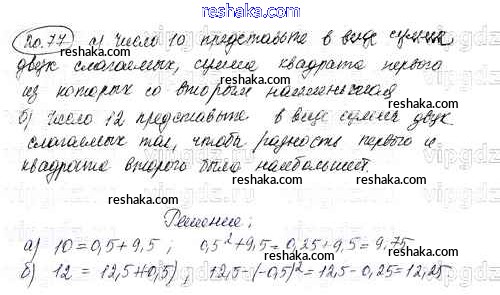 reshaka.com
20.77 а) Число 10 представьте в виде суммы
двух слагаемых, сумма квадрата первого
из которых со вторым наименьшая
б) Число 12 представьте в виде суммы двух
слагаемых так, чтобы разность первого и
квадрата второго была наибольшей.
Решение:
а) 10 = 0,5 + 9,5 ; 0,5² + 9,5 = 0,25 + 9,5 = 9,75
б) 12 = 12,5 + 0,5) ; 12,5 - (-0,5)² = 12,5 - 0,25 = 12,25.
reshaka.com